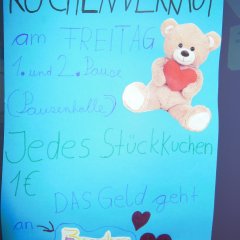 KUCHENVERKAUF
am FREITAG
1. und 2. Pause
(Pausenhalle)
Jedes Stück Kuchen
1€
DAS Geld geht
an